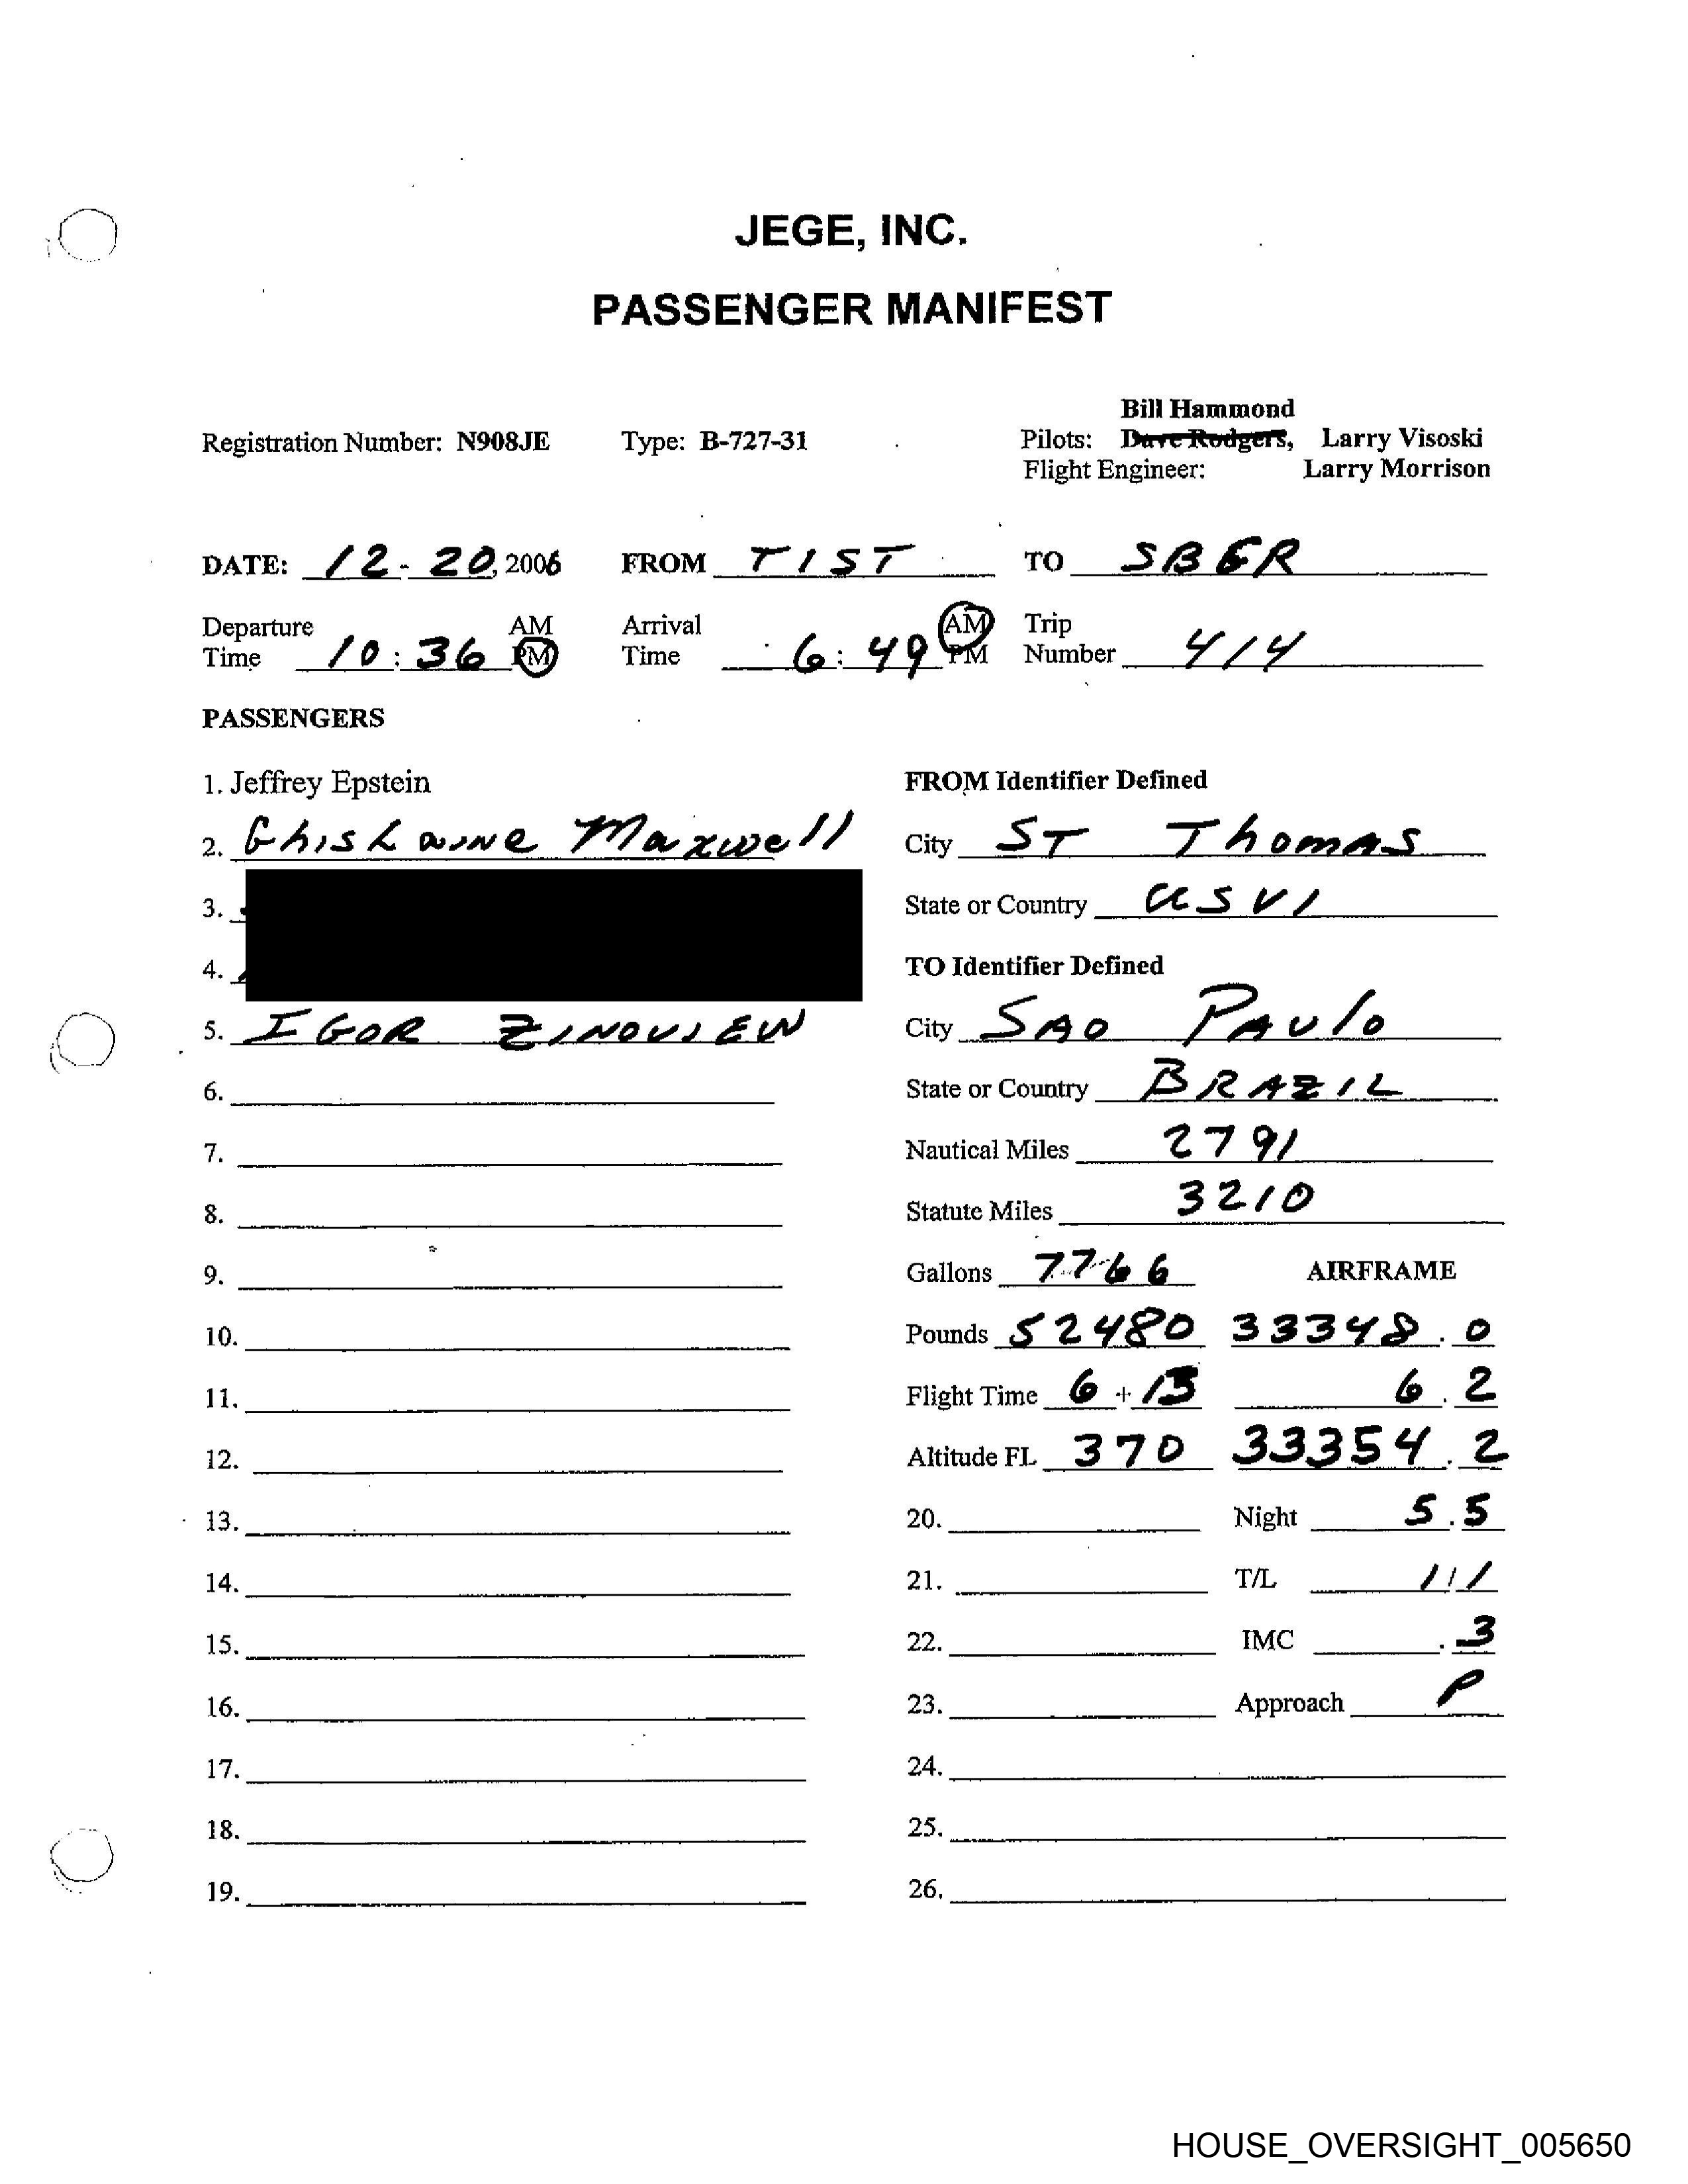 JEGE, INC.
PASSENGER MANIFEST
Bill Hammond
Registration Number: N908JE Type: B-727-31 Pilots: Dave Rodgers, Larry Visoski
Flight Engineer: Larry Morrison
DATE: 12-20, 2006 FROM TIST TO SBGR
Departure Time 10:36 AM PM Arrival Time 6:49 AM PM Trip Number 414
PASSENGERS
1. Jeffrey Epstein FROM Identifier Defined
2. GhisLaine Maxwell City ST Thomas
3. State or Country USVI
4. TO Identifier Defined
5. IGOR ZINOVIEW City SAO PAulo
6. State or Country BRAZIL
7. Nautical Miles 2791
8. Statute Miles 3210
9. Gallons 7766 AIRFRAME
10. Pounds 52480 33348.0
11. Flight Time 6+13 6.2
12. Altitude FL 370 33354.2
13. 20. Night 5.5
14. 21. T/L 1/1
15. 22. IMC .3
16. 23. Approach P
17. 24.
18. 25.
19. 26.
HOUSE_OVERSIGHT_005650